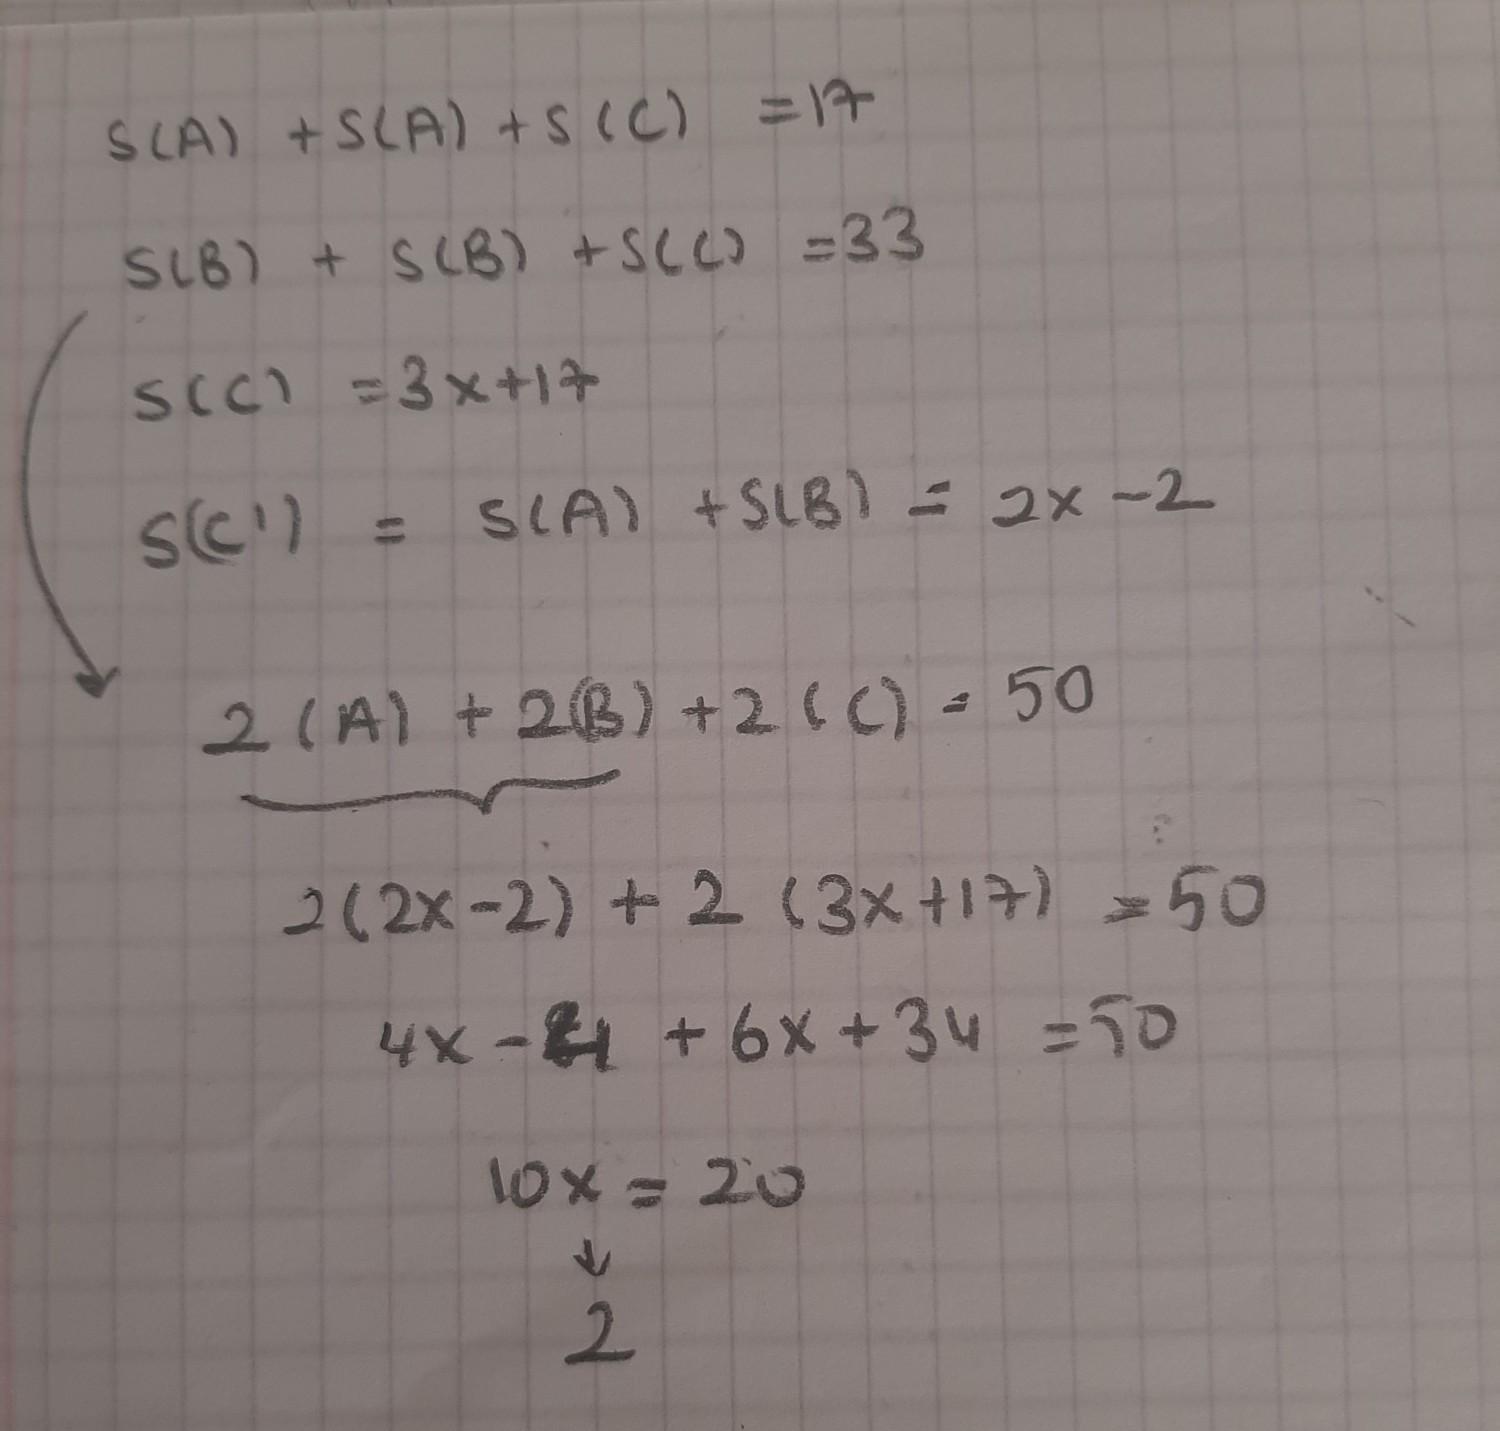 S(A) + S(A) + S(C) = 17
S(B) + S(B) + S(C) = 33
S(C) = 3x+17
S(C') = S(A) + S(B) = 2x-2
2(A) + 2(B) + 2(C) = 50
2(2x-2) + 2(3x+17) = 50
4x-4 + 6x+34 = 50
10x = 20
↓
2